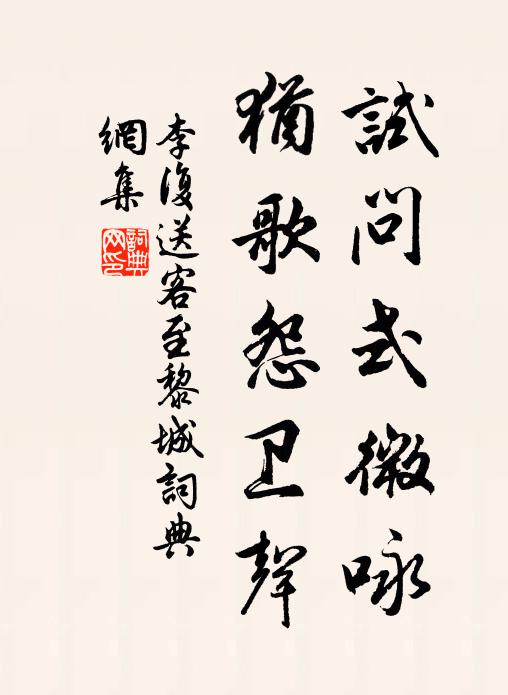 試問式微咏
猶歌怨卫聲
李復送客至黎城詞典
網集
詞典
网印